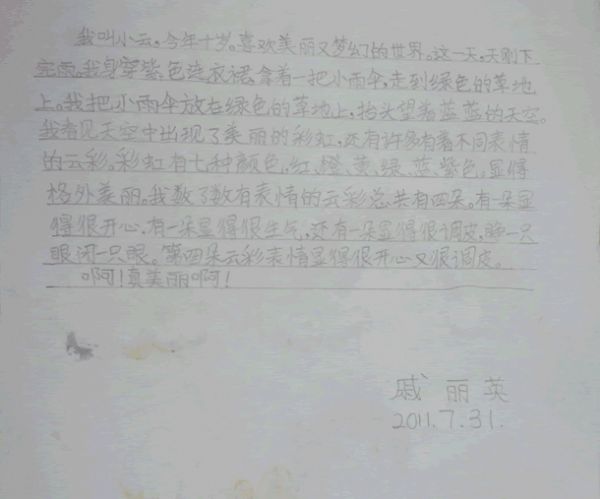 我叫小云,今年十岁。喜欢美丽又梦幻的世界。这一天,天刚下
完雨。我身穿紫色连衣裙,拿着一把小雨伞,走到绿色的草地
上。我把小雨伞放在绿色的草地上,抬头望着蓝蓝的天空。
我看见天空中出现了美丽的彩虹,还有许多有着不同表情
的云彩。彩虹有七种颜色,红、橙、黄、绿、蓝、紫色,显得
格外美丽。我数了数有表情的云彩总共有四朵。有一朵显
得很开心,有一朵显得很生气,还有一朵显得很调皮,睁一只
眼闭一只眼。第四朵云彩表情显得很开心又很调皮。
啊!真美丽啊!
戚丽英
2011.7.31.